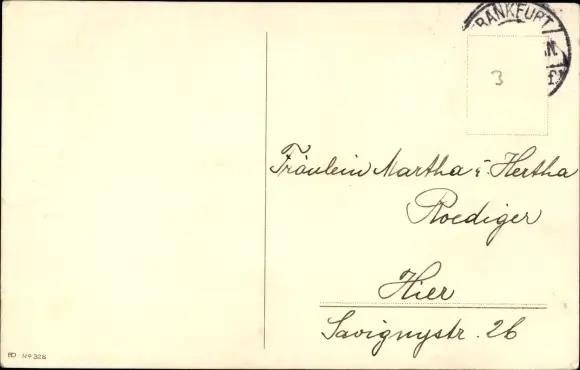 FRANKFURT
3
Fräulein Martha u. Hertha
Roediger
Hier
Savignystr. 26
BD No 328